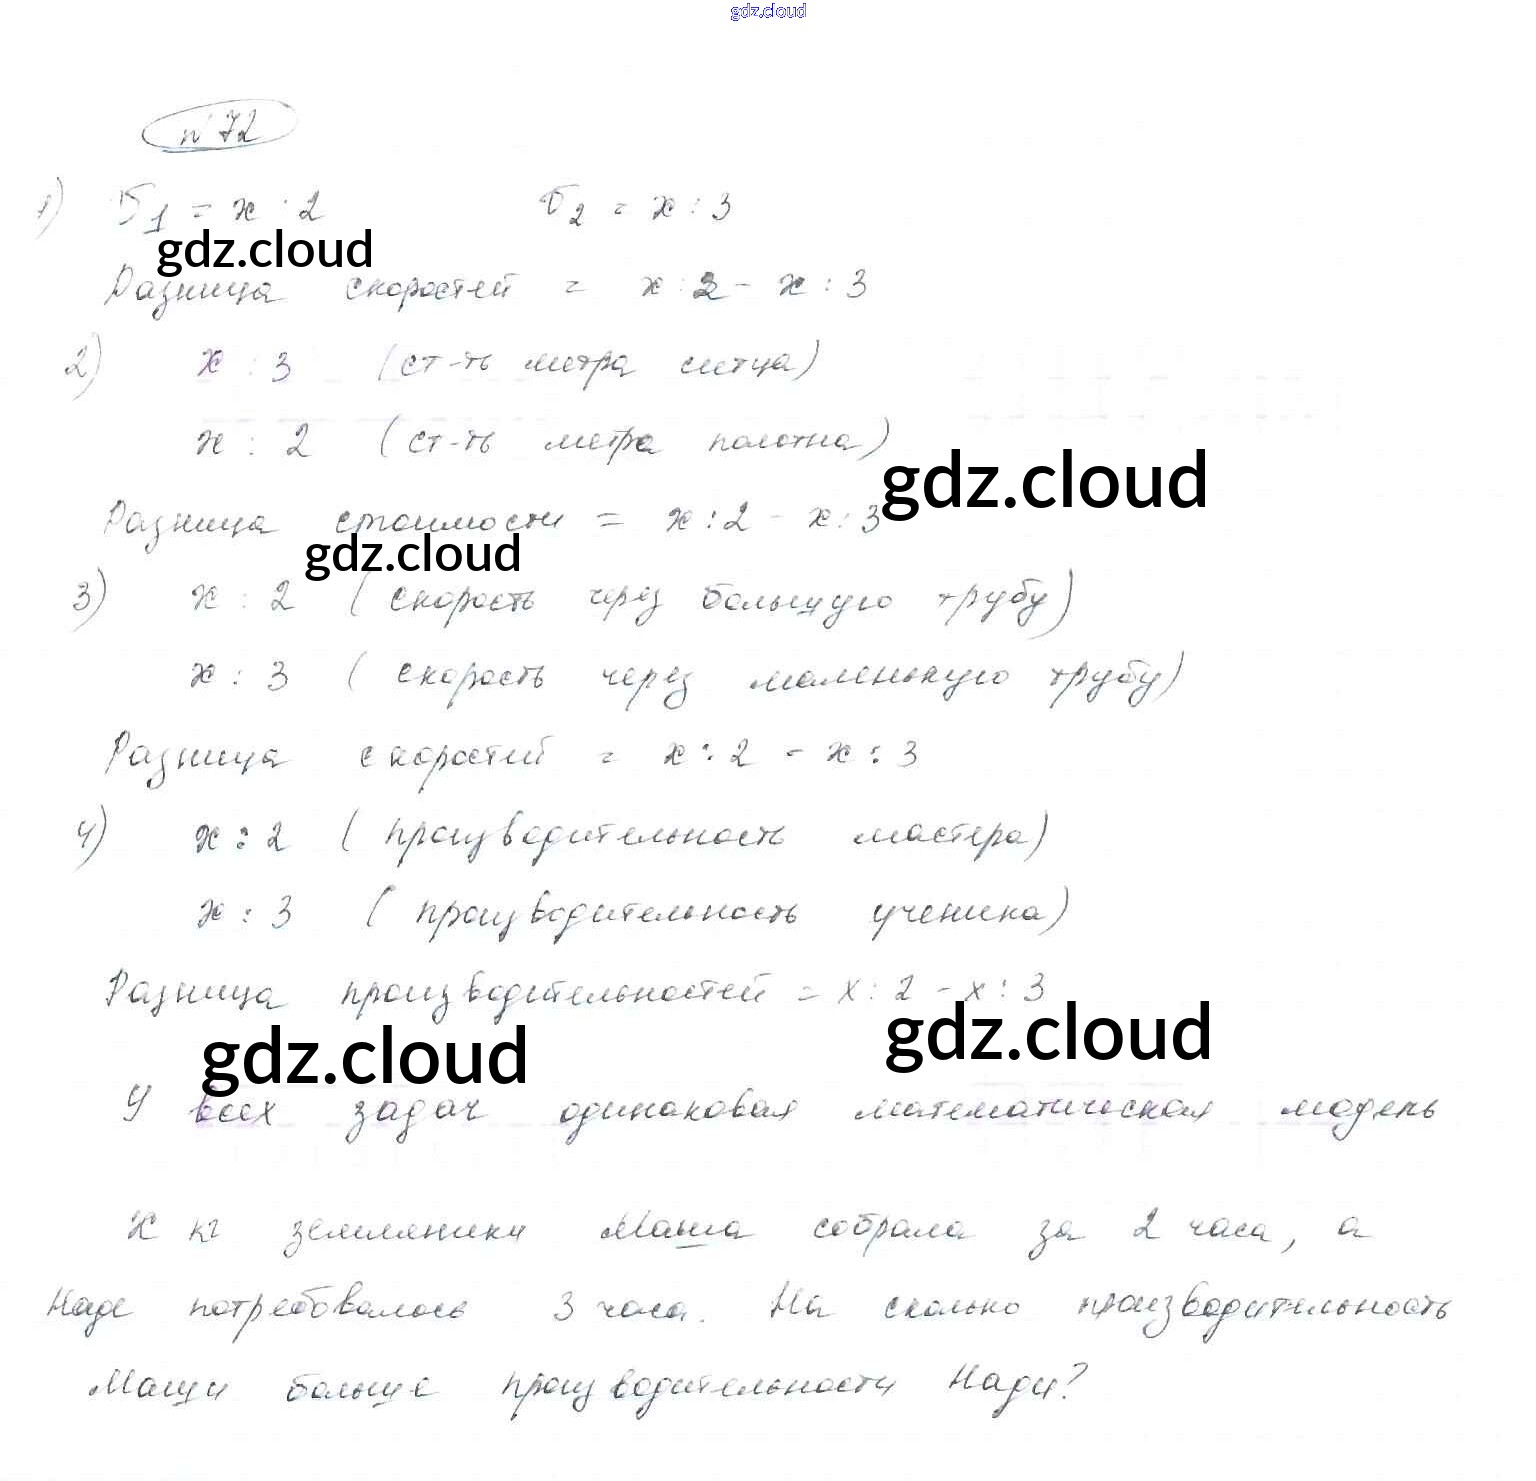 gdz.cloud
№ 72
1) V₁ = x : 2 V₂ = x : 3
gdz.cloud
Разница скоростей = x : 2 - x : 3
2) x : 3 (ст-ть метра ситца)
x : 2 (ст-ть метра полотна)
gdz.cloud
Разница стоимости = x : 2 - x : 3
gdz.cloud
3) x : 2 (скорость через большую трубу)
x : 3 (скорость через маленькую трубу)
Разница скоростей = x : 2 - x : 3
4) x : 2 (производительность мастера)
x : 3 (производительность ученика)
Разница производительностей = x : 2 - x : 3
gdz.cloud gdz.cloud
У всех задач одинаковая математическая модель
X кг земляники Маша собрала за 2 часа, а
Наде потребовалось 3 часа. На сколько производительность
Маши больше производительности Нади?